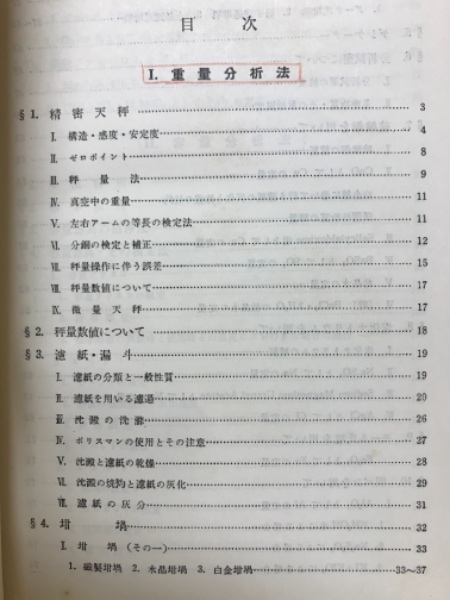 目 次
I. 重量分析法
§1. 精密天秤 3
I. 構造・感度・安定度 4
II. ゼロポイント 8
III. 秤量法 9
IV. 真空中の重量 11
V. 左右アームの等長の検定法 11
VI. 分銅の検定と補正 12
VII. 秤量操作に伴う誤差 15
VIII. 秤量数値について 17
IX. 微量天秤 17
§2. 秤量数値について 18
§3. 濾紙・漏斗 19
I. 濾紙の分類と一般性質 19
II. 濾紙を用いる濾過 20
III. 沈澱の洗滌 26
IV. ポリスマンの使用とその注意 27
V. 沈澱と濾紙の乾燥 28
VI. 沈澱の焼灼と濾紙の灰化 29
VII. 濾紙の灰分 31
§4. 坩堝 32
I. 坩堝(その一) 33
1. 磁製坩堝 2. 水晶坩堝 3. 白金坩堝 33~37